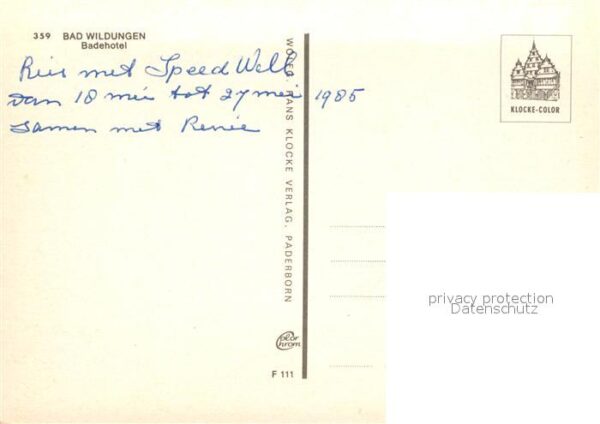 359 BAD WILDUNGEN
Badehotel
Reis met Speed Well
van 18 mei tot 27 mei 1985
samen met Renée
WOLFG. HANS KLOCKE VERLAG, PADERBORN
Color
Chrom
F 111
KLOCKE-COLOR
privacy protection
Datenschutz